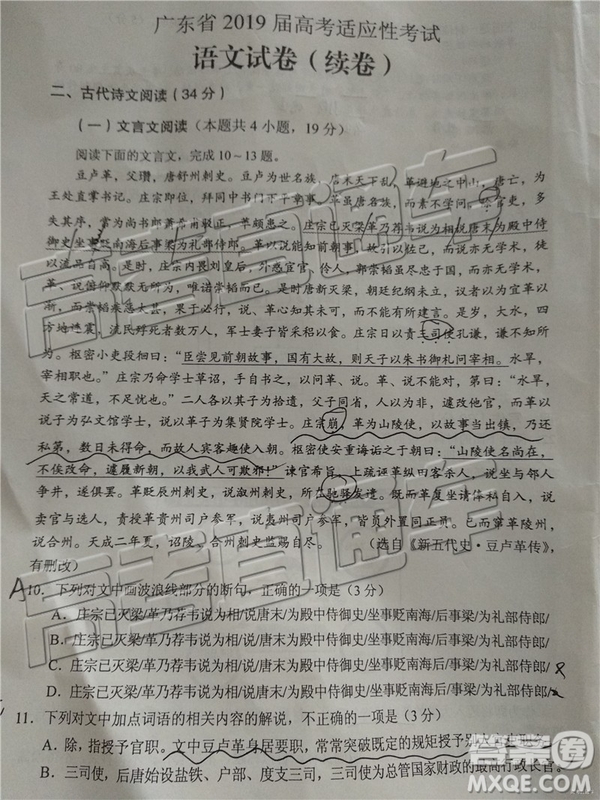 广东省 2019 届高考适应性考试
语文试卷（续卷）
二、古代诗文阅读（34 分）
（一）文言文阅读（本题共 4 小题，19 分）
阅读下面的文言文，完成 10～13 题。
豆卢革，父瓒，唐舒州刺史。豆卢为世名族，唐末天下乱，革避地之中山，唐亡，为
王处直掌书记。庄宗即位，拜同中书门下平章事。革虽唐名族，而素不学问。除官吏，多
失其序，常为尚书郎萧希甫驳正，革颇患之。庄宗已灭梁革乃荐韦说为相说唐末为殿中侍
御史坐事贬南海后事梁为礼部侍郎。革以说能知前朝事，故引以佐己，而说亦无学术，徒
以流品自高。是时，庄宗内畏刘皇后，外惑宦官、伶人，郭崇韬虽尽忠于国，而亦无学术，
革、说俯仰默默无所为，唯诺崇韬而已。唐、梁之际，
渐，而崇韬疾恶太甚，果于必行，说、革心知其未可，而不能有所建言。是岁，大水，四
方地连震，流民殍死者数万人，军士妻子皆采稆以食。庄宗日以责三司使孔谦，谦不知所
为。枢密小吏段徊曰：“臣尝见前朝故事，国有大故，则天子以朱书御札问宰相。水旱，
宰相职也。”庄宗乃命学士草诏，手自书之，以问革、说。革、说不能对，第曰：“水旱，
天之常道，不足忧也。”二人各以其子为拾遗，父子同省，人以为非，遽改他官，而革以
说子为弘文馆学士，说以革子为集贤院学士。庄宗崩，革为山陵使，以故事当出镇，乃还
私第，数日未得命，而故人宾客趣使入朝。枢密使安重诲诟之于朝曰：“山陵使名尚在，
不俟改命，遽履新朝，以我武人可欺邪！”谏官希旨，上疏诬革纵田客杀人，说坐与邻人
争井，遂俱罢。革贬辰州刺史，说溆州刺史，所在驰驿发遣。
卖官与选人，责授革费州司户参军，说夷州司户参军，皆员外置同正员。已而窜革陵州，
说合州。天成二年夏，诏陵、合州刺史监赐自尽。 （选自《新五代史·豆卢革传》，
有删改）
A10. 下列对文中画波浪线部分的断句，正确的一项是（3 分）
A．庄宗已灭梁/革乃荐韦说为相/说唐末为殿中侍御史/坐事贬南海/后事梁/为礼部侍郎/
B．庄宗已灭梁/革乃荐韦说为相/说唐末/为殿中侍御史/坐事贬南海/后事梁/为礼部侍郎/
C．庄宗已灭梁/革乃荐韦说为相/说唐末为殿中侍御史/坐事贬/南海后事梁/为礼部侍郎/
D．庄宗已灭梁/革乃荐韦说为相/说唐末/为殿中侍御史/坐事贬南海后/事梁/为礼部侍郎/
11. 下列对文中加点词语的相关内容的解说，不正确的一项是（3 分）
A．除，指授予官职。文中豆卢革身居要职，常常突破既定的规矩授予别人
B．三司使，后唐始设盐铁、户部、度支三司，三司使为总管国家财政的最高行政长官。
高考直通车
答案圈
MXQE.COM